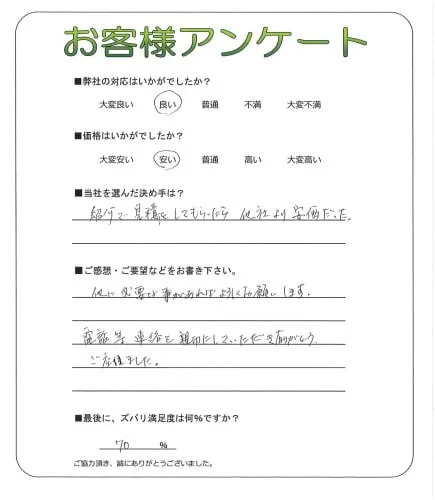 お客様アンケート
■弊社の対応はいかがでしたか?
大変良い 良い 普通 不満 大変不満
■価格はいかがでしたか?
大変安い 安い 普通 高い 大変高い
■当社を選んだ決め手は?
紹介で見積をしてもらったら他社より安価だった。
■ご感想・ご要望などをお書き下さい。
他に必要な事があればよろしくお願いします。
電話等連絡を親切にしていただき有がとう
ご座居ました。
■最後に、ズバリ満足度は何%ですか?
70 %
ご協力頂き、誠にありがとうございました。